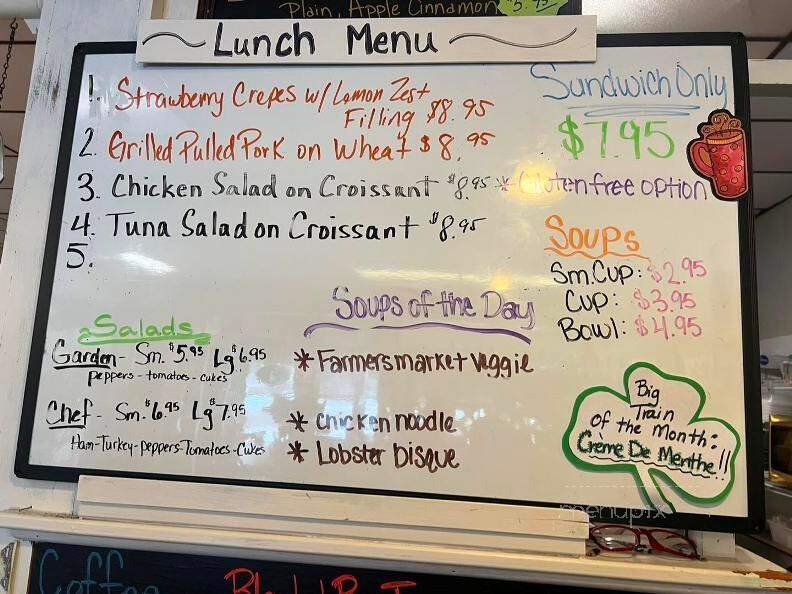 Plain, Apple Cinnamon $5.75
Lunch Menu
1. Strawberry Crepes w/ Lemon Zest
Filling $8.95
2. Grilled Pulled Pork on Wheat $8.95
3. Chicken Salad on Croissant $8.95 * Gluten free option
4. Tuna Salad on Croissant $8.95
5.
Sandwich Only
$7.95
Soups
Sm. Cup: $2.95
Cup: $3.95
Bowl: $4.95
Salads
Garden - Sm. $5.95 Lg $6.95
peppers - tomatoes - cukes
Chef - Sm. $6.95 Lg $7.95
Ham-Turkey-peppers-Tomatoes-Cukes
Soups of the Day
* Farmers market veggie
* Chicken noodle
* Lobster Bisque
Big
Train
of the Month:
Crème De Menthe!!
menupix
Coffee